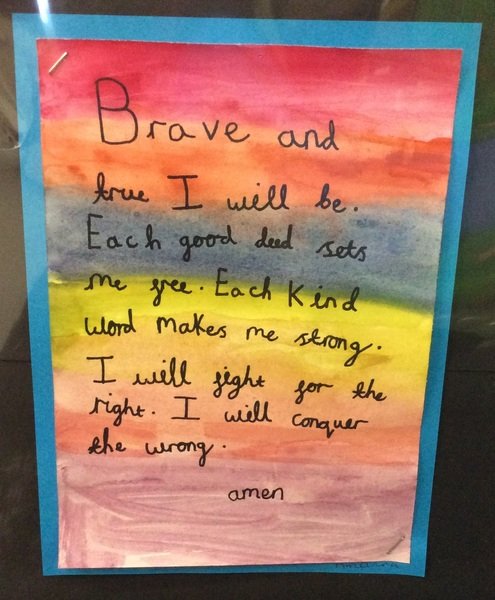 Brave and
true I will be.
Each good deed sets
me free. Each Kind
word makes me strong.
I will fight for the
right. I will conquer
the wrong.
amen